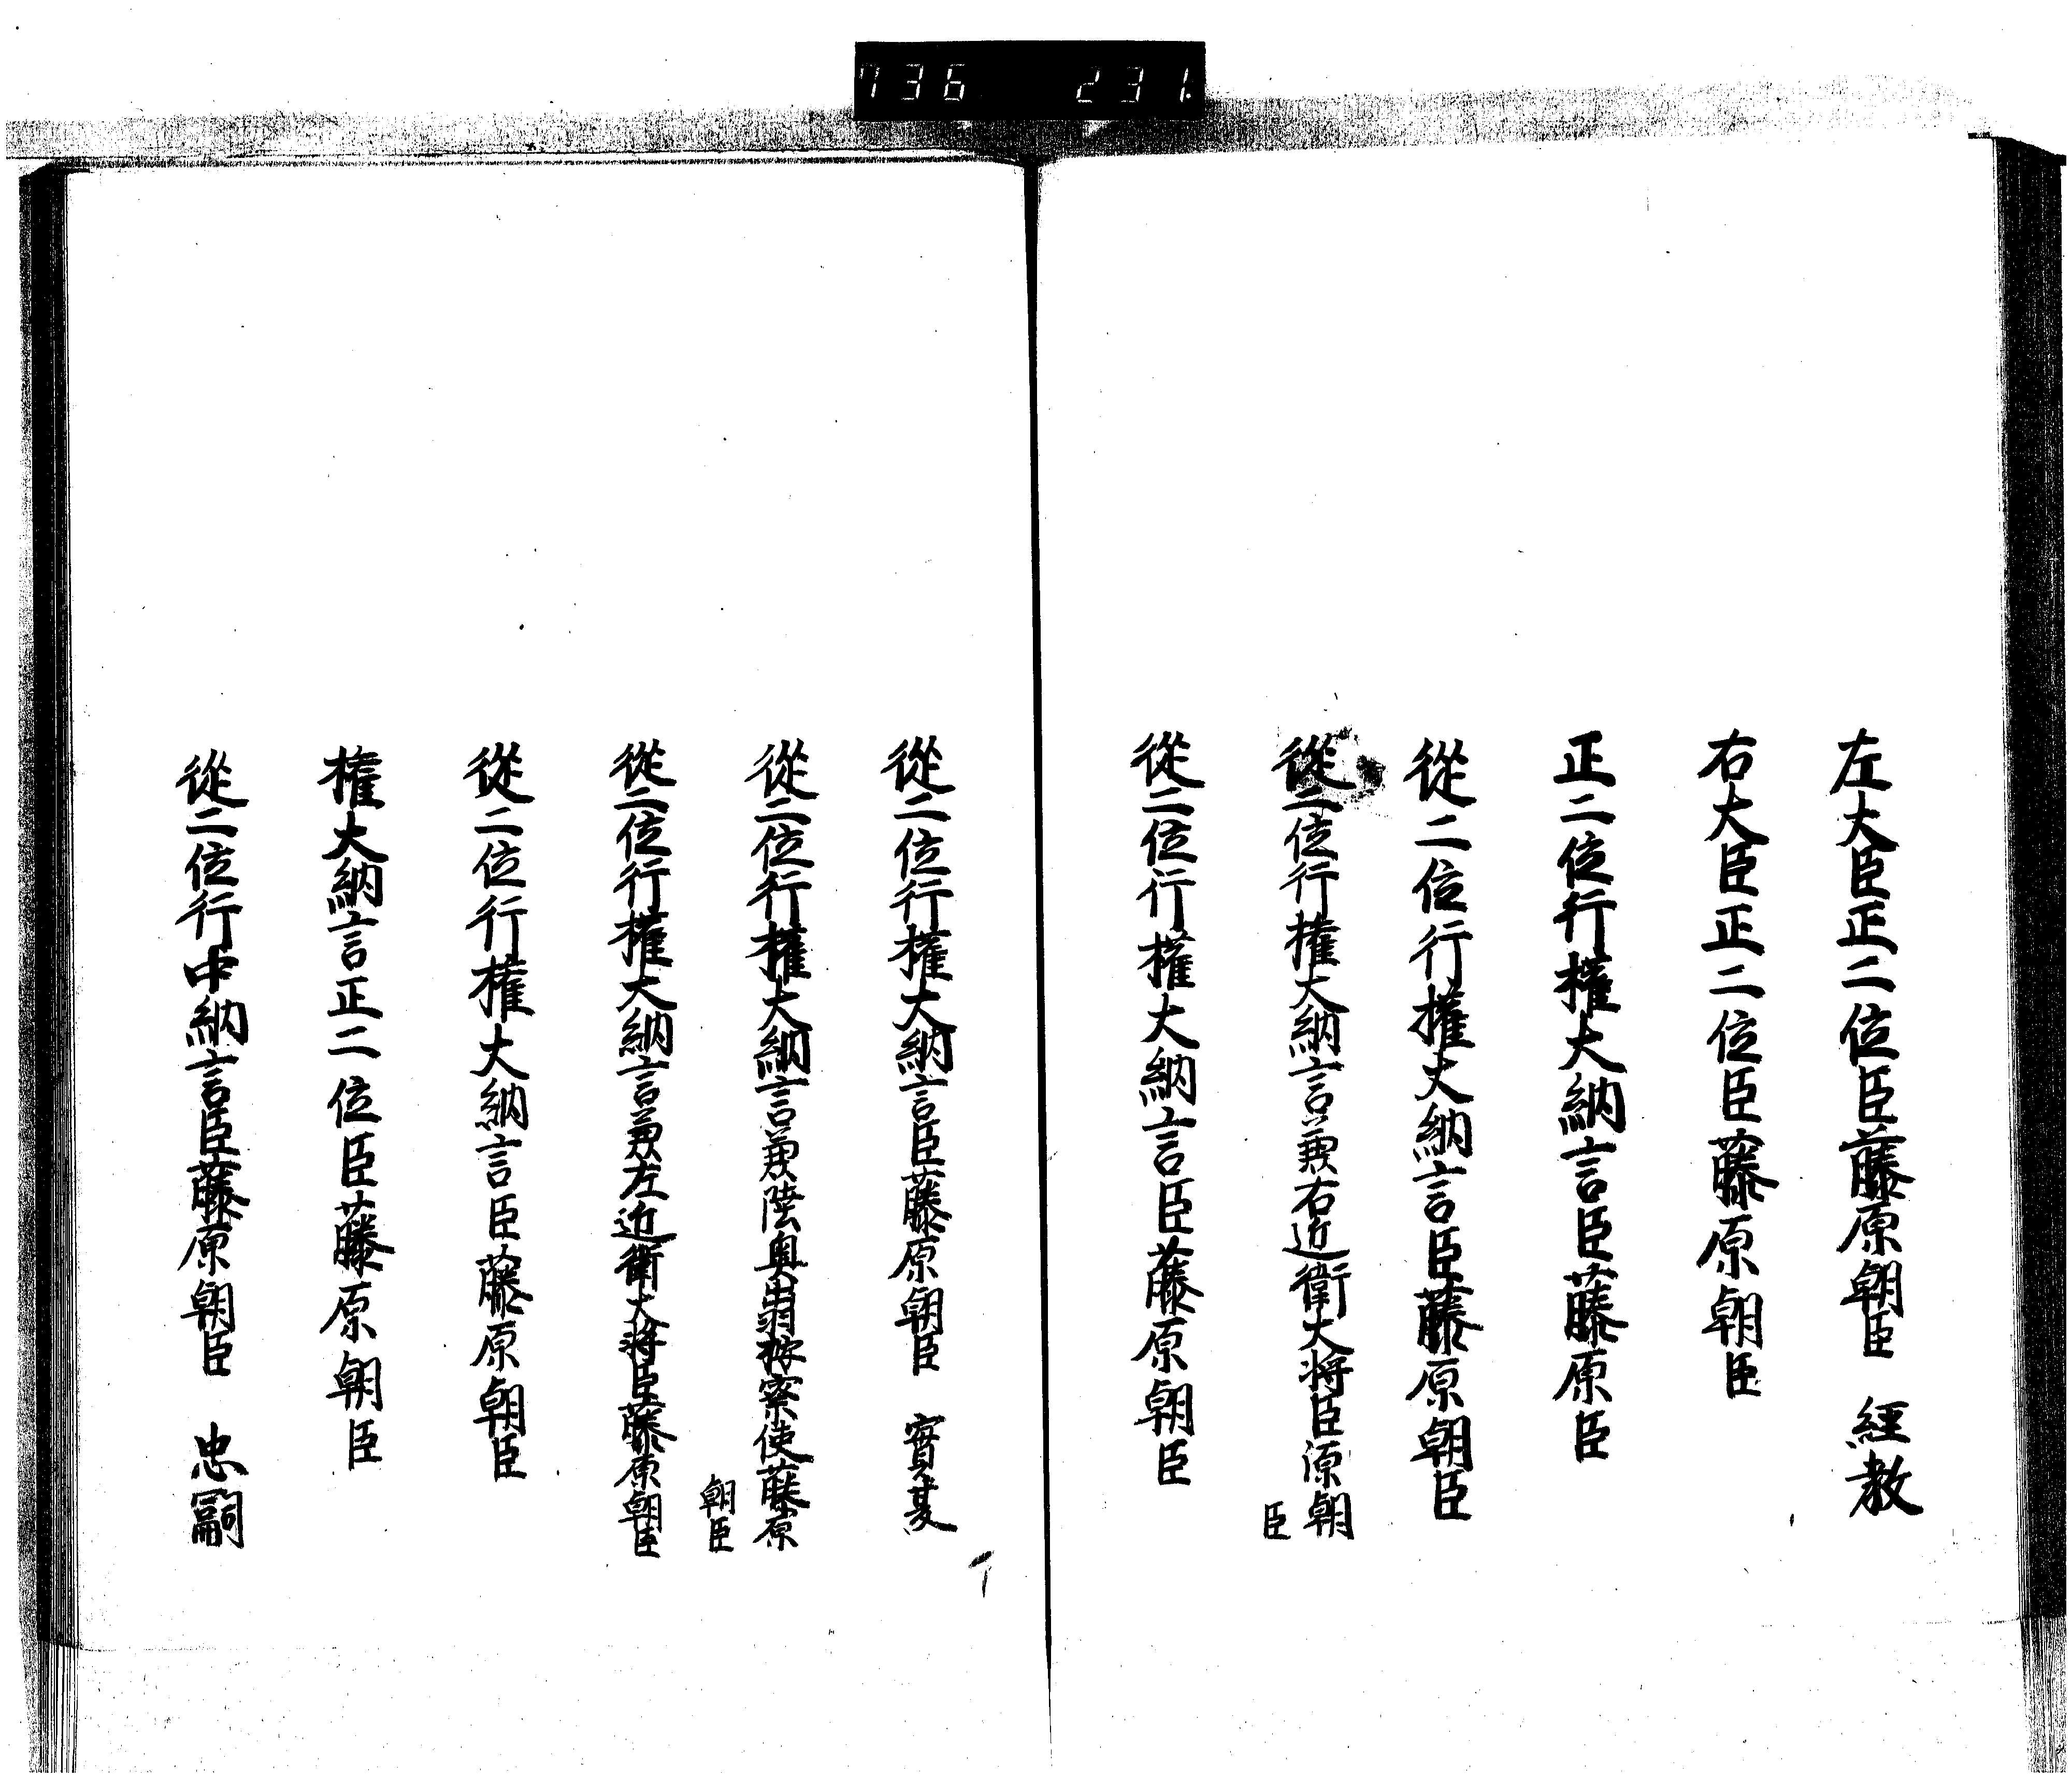 736 231
左大臣正二位臣藤原朝臣 經教
右大臣正二位臣藤原朝臣
正二位行權大納言臣藤原臣
從二位行權大納言臣藤原朝臣
從二位行權大納言兼右近衛大将臣源朝
臣
從二位行權大納言臣藤原朝臣
從二位行權大納言臣藤原朝臣 實夏
從二位行權大納言兼陸奥出羽按察使藤原
朝臣
從二位行權大納言兼左近衛大将臣藤原朝臣
從二位行權大納言臣藤原朝臣
權大納言正二位臣藤原朝臣
從二位行中納言臣藤原朝臣 忠嗣